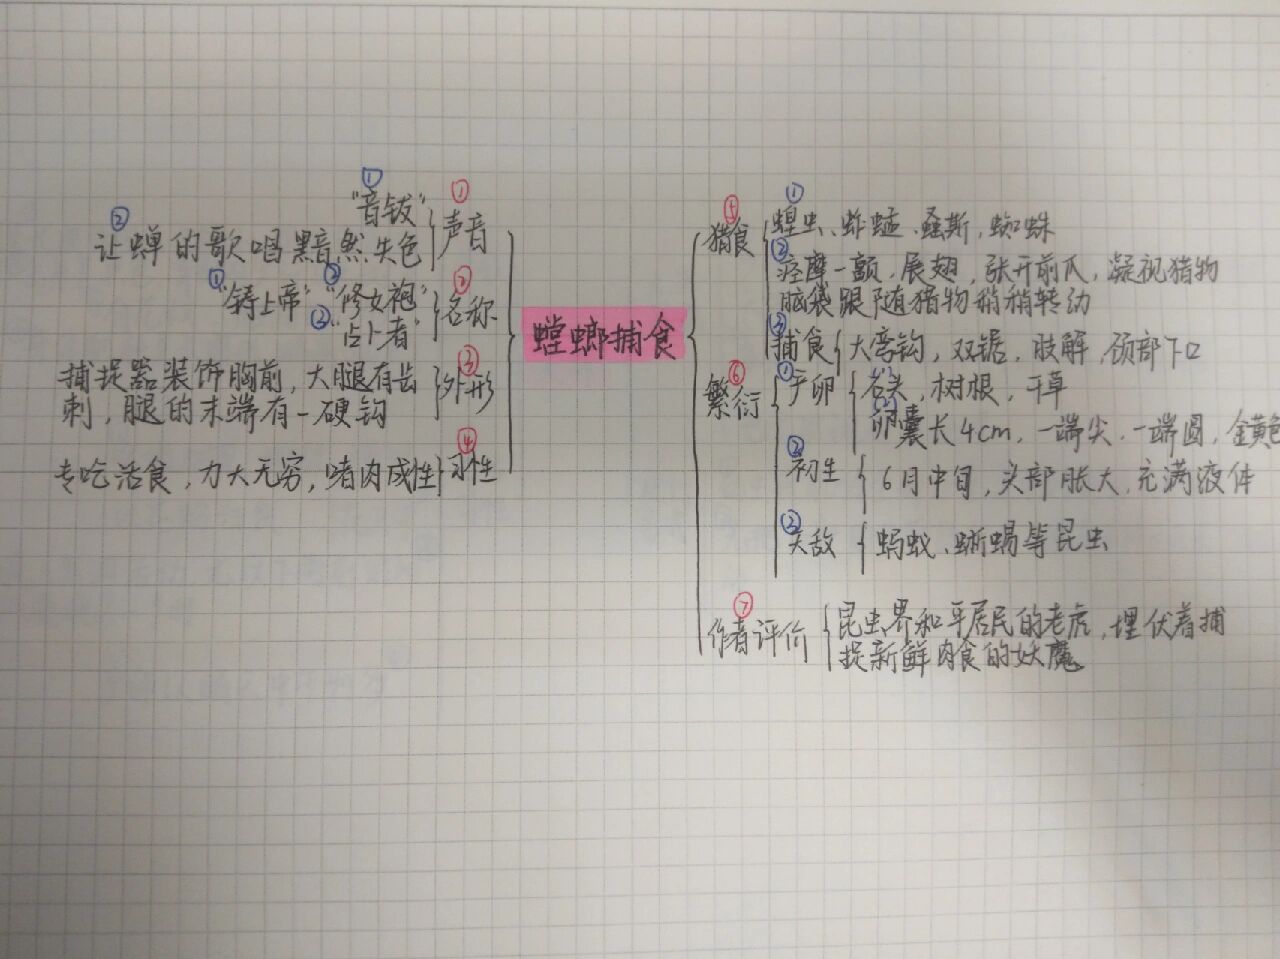 螳螂捕食
① 声音
① "音钹"
② 让蝉的歌唱黯然失色
② 名称
① "祷上帝" ② "修女袍"
③ "占卜者"
③ 外形
捕捉器装饰胸前，大腿有齿
刺，腿的末端有一硬钩
④ 习性
专吃活食，力大无穷，嗜肉成性
猎食
① 蝗虫、蚱蜢、螽斯，蜘蛛
② 痉挛一颤，展翅，张开前爪，凝视猎物
脑袋跟随猎物稍稍转动
③ 捕食
大弯钩，双锯，肢解，颈部下口
⑥ 繁衍
① 产卵
石头，树根，干草
卵囊长4cm，一端尖，一端圆，金黄色
② 初生
6月中旬，头部胀大，充满液体
③ 天敌
蚂蚁、蜥蜴等昆虫
⑦ 作者评价
昆虫界和平居民的老虎，埋伏着捕
捉新鲜肉食的妖魔